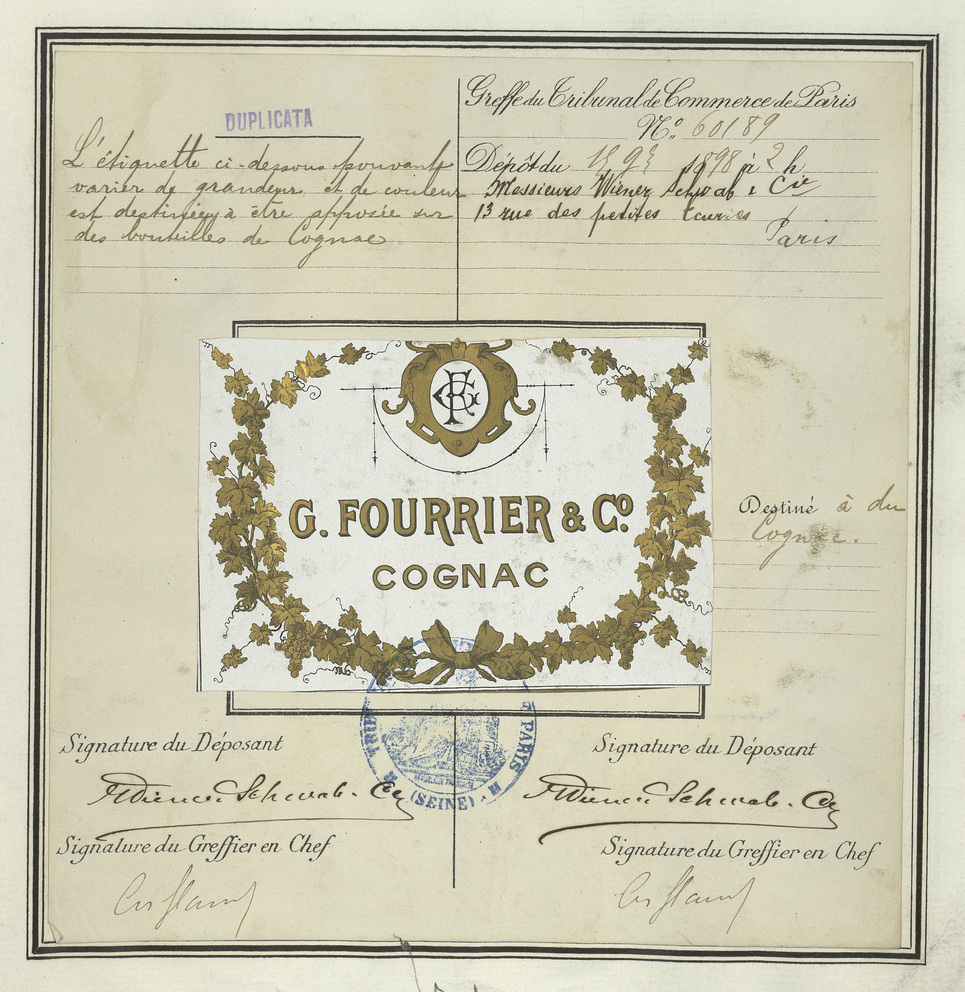 DUPLICATA
L'étiquette ci-dessous pouvant
varier de grandeur et de couleur
est destinée à être apposée sur
des bouteilles de Cognac
Greffe du Tribunal de Commerce de Paris
N° 60189
Dépôt du 1898 à 2 h
Messieurs Wiener Schwab & Cie
13 rue des petites Écuries
Paris
G. FOURRIER & Co.
COGNAC
Destiné à du
Cognac.
TRIB PARIS
(SEINE)
Signature du Déposant
Wiener Schwab. Cie
Signature du Greffier en Chef
Signature du Déposant
Wiener Schwab. Cie
Signature du Greffier en Chef